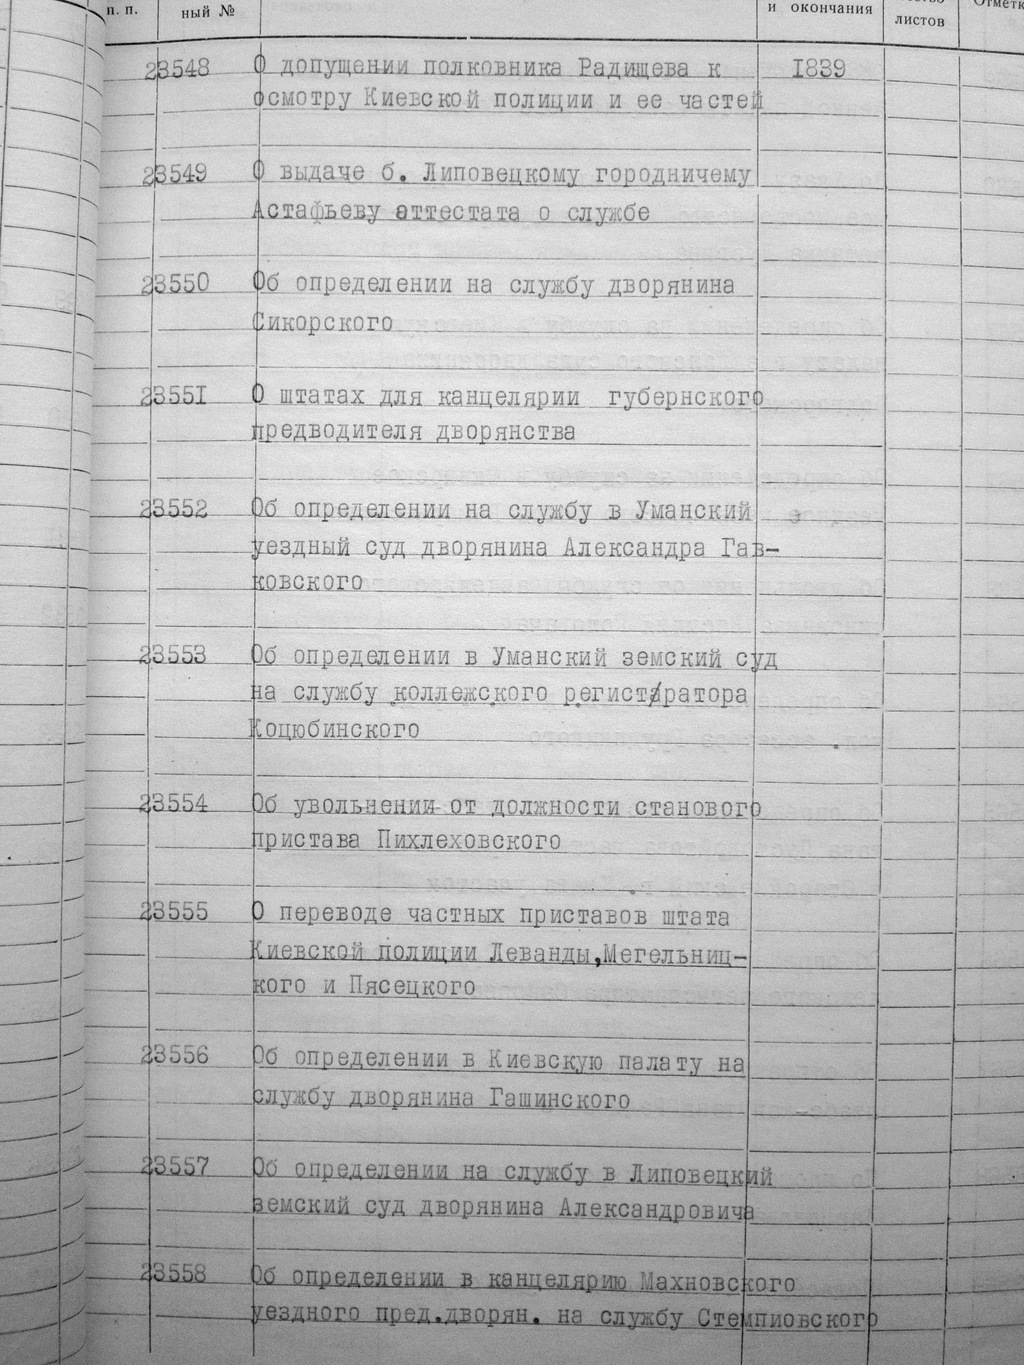 п. п. ный № и окончания листов
23548 О допущении полковника Радищева к 1839
осмотру Киевской полиции и ее частей
23549 О выдаче б. Липовецкому городничему
Астафьеву аттестата о службе
23550 Об определении на службу дворянина
Сикорского
23551 О штатах для канцелярии губернского
предводителя дворянства
23552 Об определении на службу в Уманский
уездный суд дворянина Александра Гав-
ковского
23553 Об определении в Уманский земский суд
на службу коллежского регистратора
Коцюбинского
23554 Об увольнении от должности станового
пристава Пихлеховского
23555 О переводе частных приставов штата
Киевской полиции Леванды,Мегельниц-
кого и Пясецкого
23556 Об определении в Киевскую палату на
службу дворянина Гашинского
23557 Об определении на службу в Липовецкий
земский суд дворянина Александровича
23558 Об определении в канцелярию Махновского
уездного пред.дворян. на службу Стемпиовского